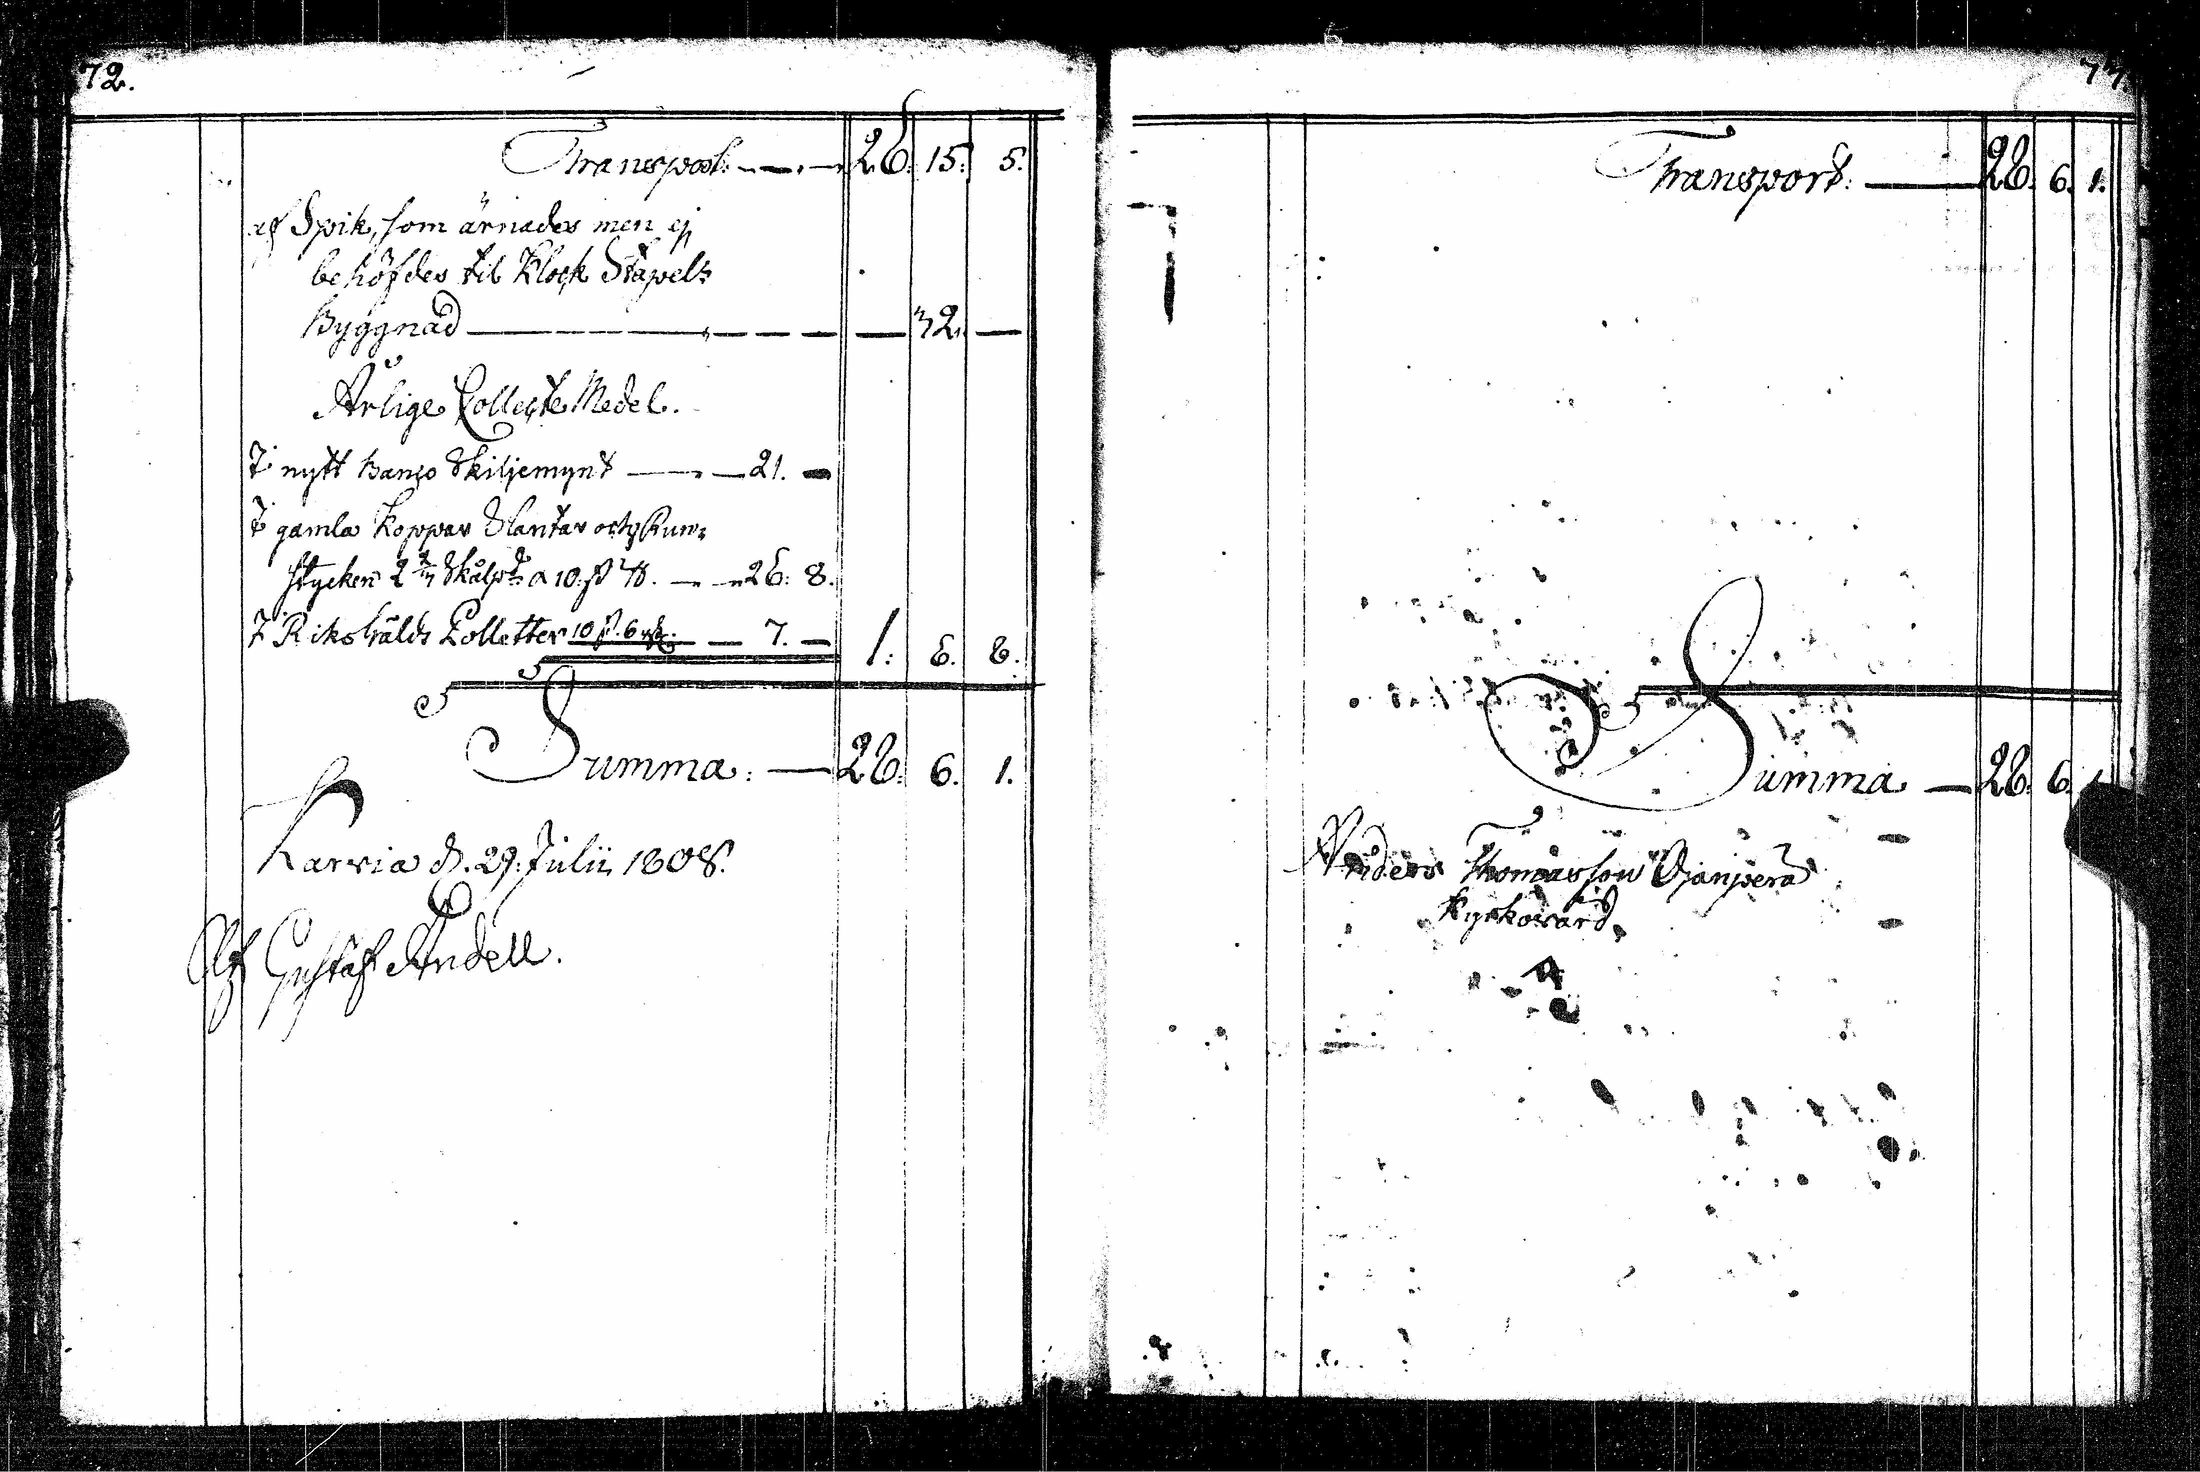 72.
Transport. 26. 15. 5.
af Spik, som ärnades men ej
behöfdes til Klock Stapels
Byggnad — 32. —
Årlige Collecte Medel.
I nytt Banco Skiljemynt — 21. —
I gamla Koppar Slantar och Run=
stycken 2 2/3 Skålp:d a 10. ß ℔. — 26: 8.
I Riksgälds Polletter 10 ß. 6 — 7. — 1: 6. 8.
Summa: — 28: 6. 1.
Karvia d. 29. Julii 1808.
Gustaf Andell.
73
Transport: — 28. 6. 1.
Summa — 28. 6. 1
Anders Thomasson Ojanperä
Kyrkovärd.